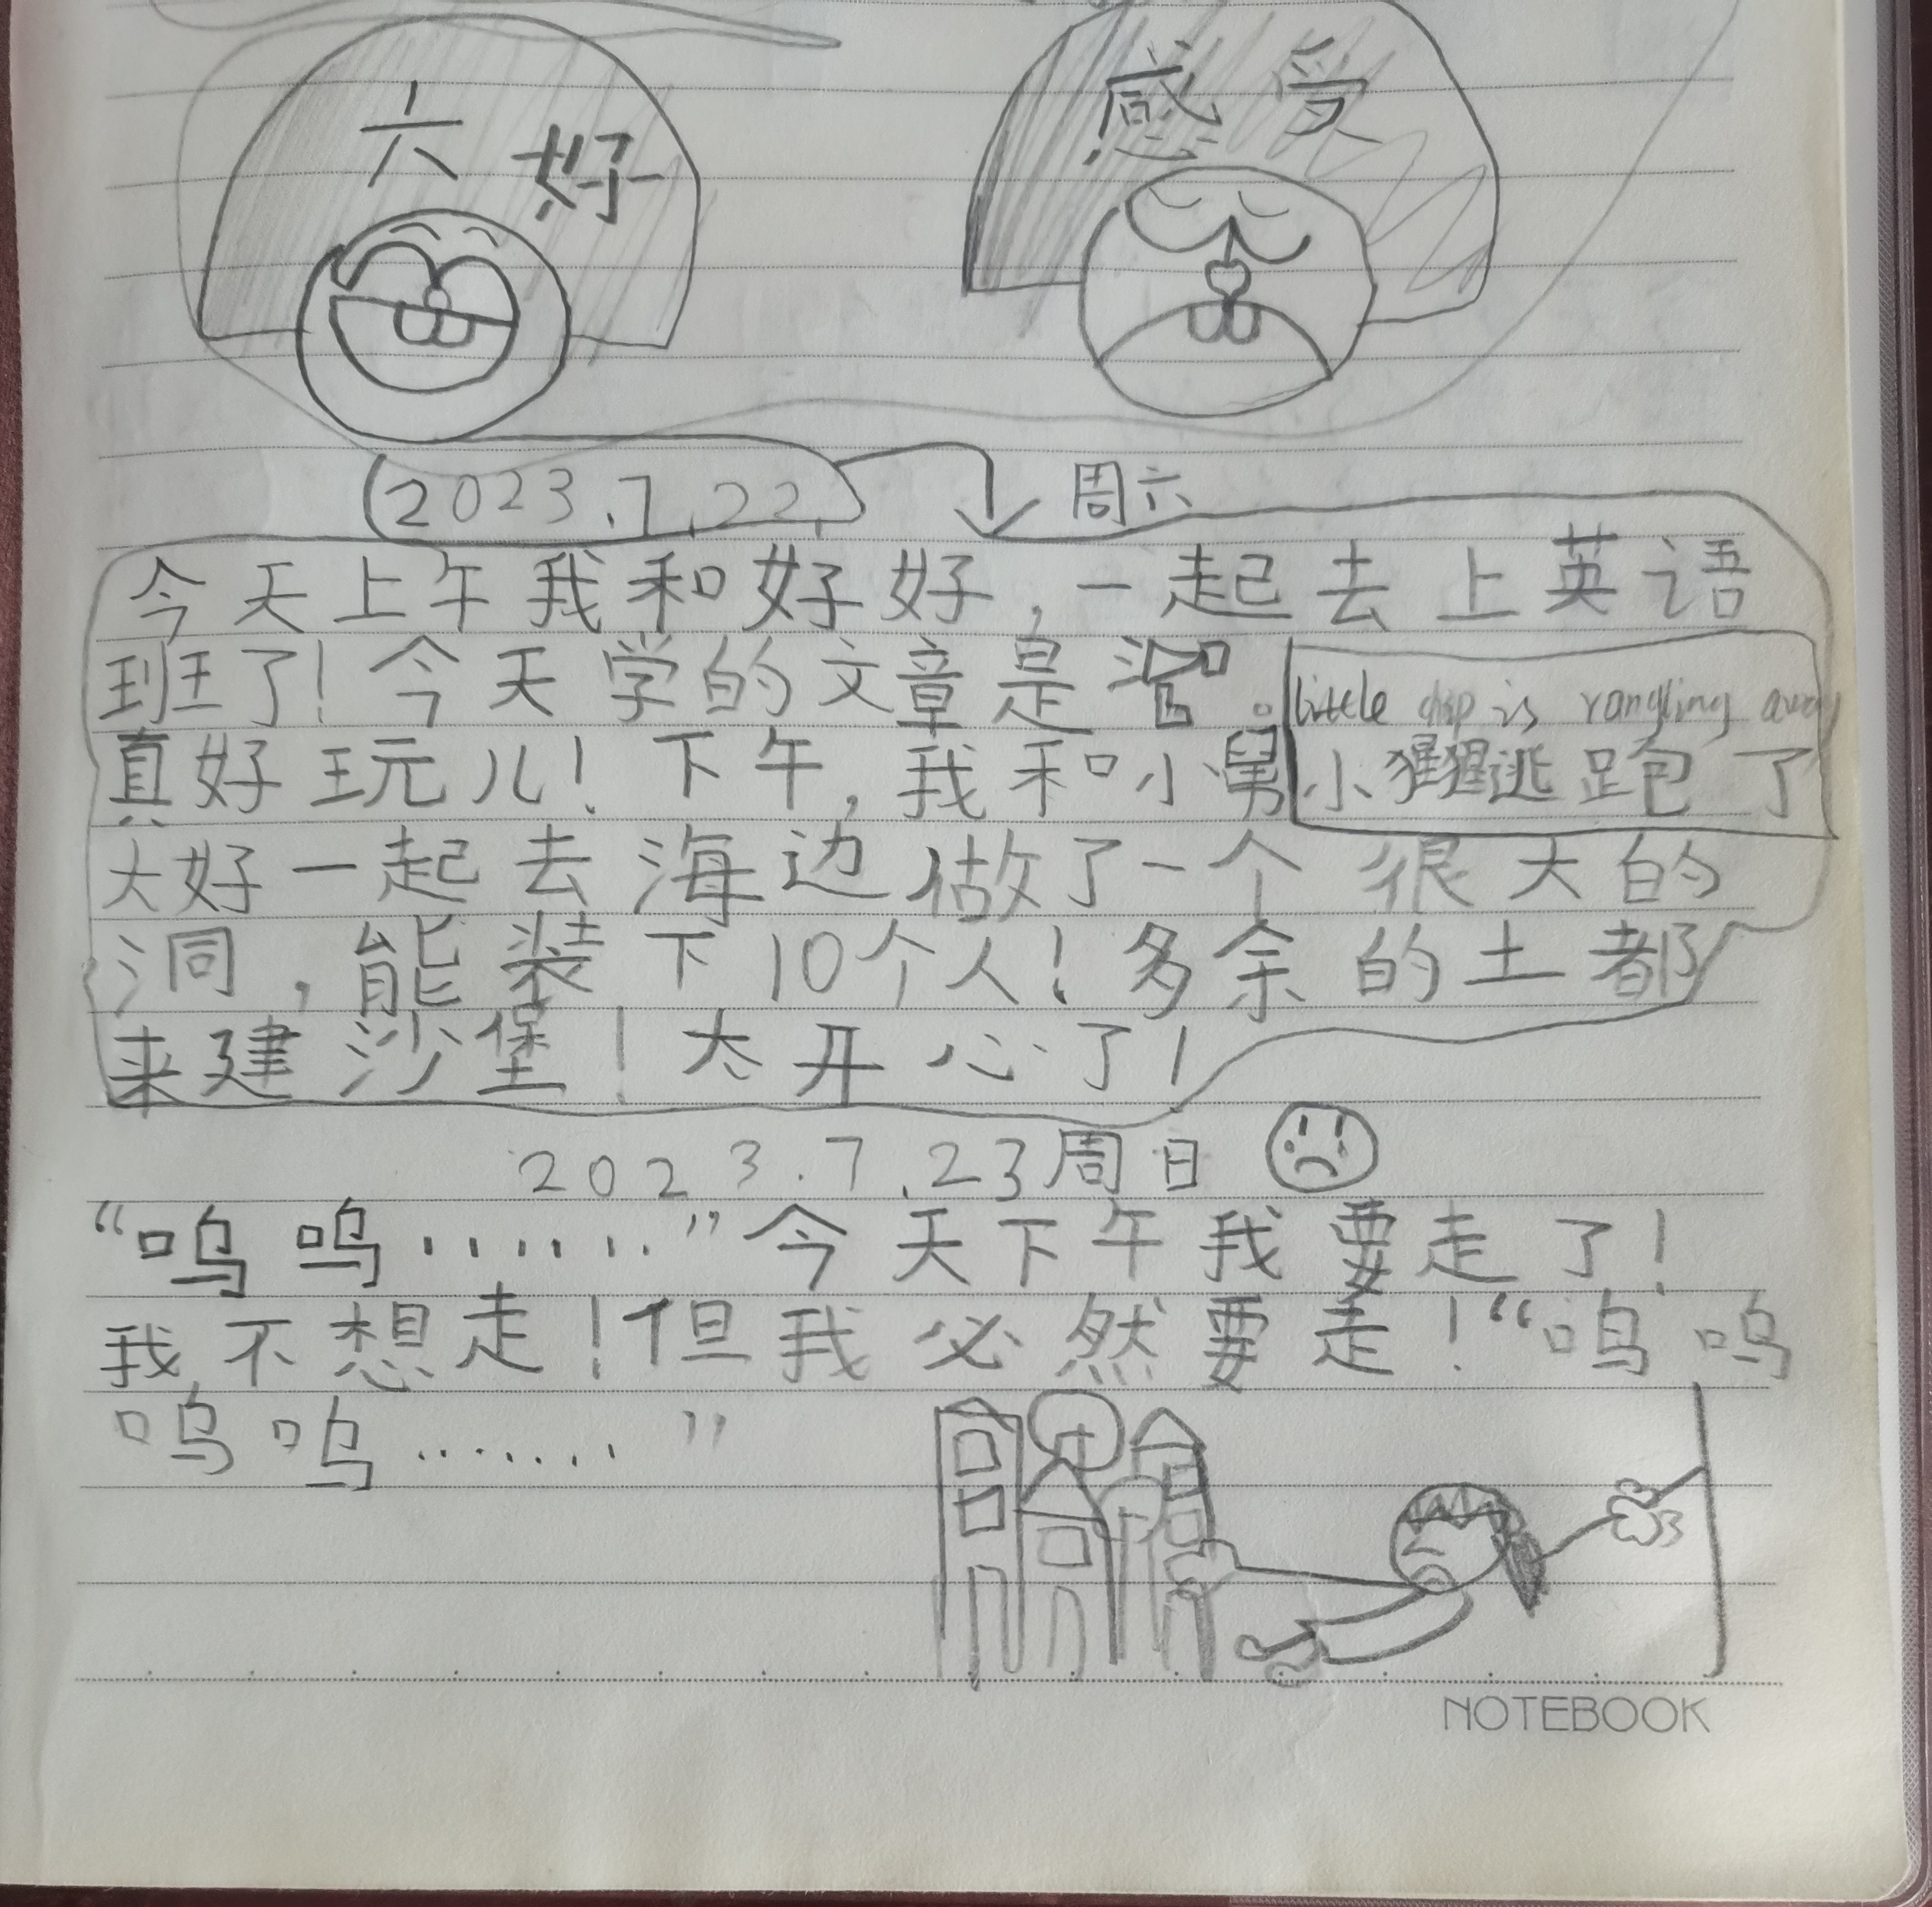 六 好
感 受
2023.7.22. 周六
今天上午我和好好,一起去上英语
班了!今天学的文章是 。
little is away
小猩猩逃跑了
真好玩儿!下午,我和小舅
大好一起去海边做了一个很大的
洞,能装下10个人!多余的土都
来建沙堡!太开心了!
2023.7.23周日
“呜呜·······”今天下午我要走了!
我不想走!但我必然要走!“呜呜
呜呜·······”
NOTEBOOK